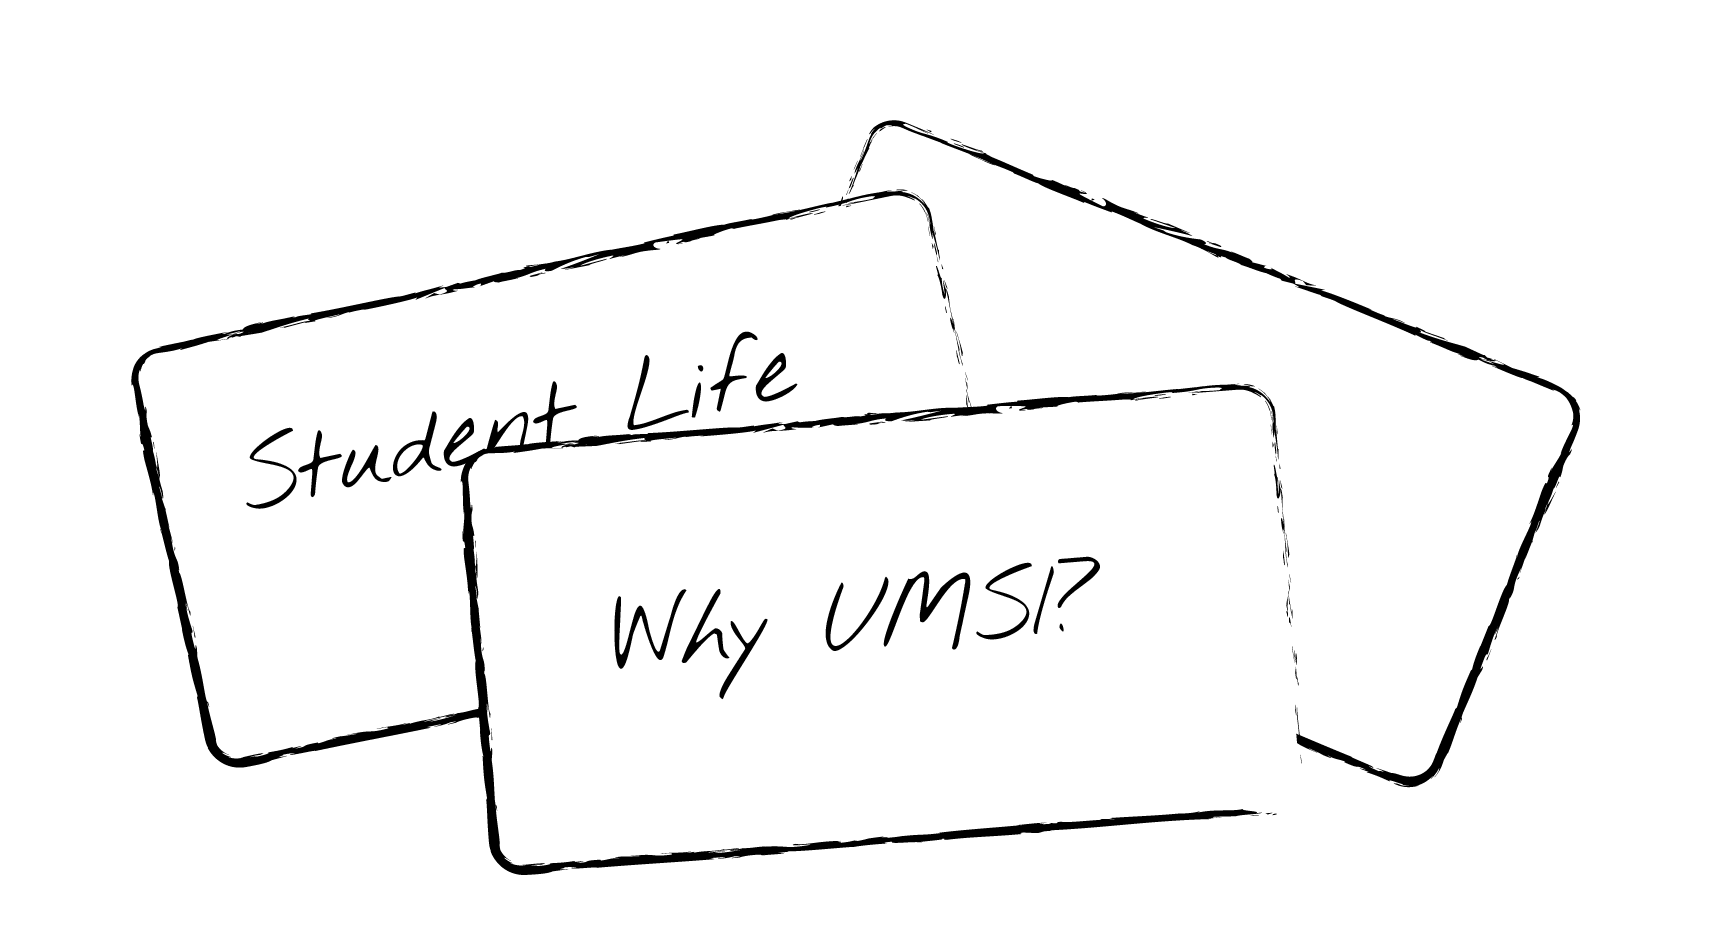 Student Life
Why UMSI?